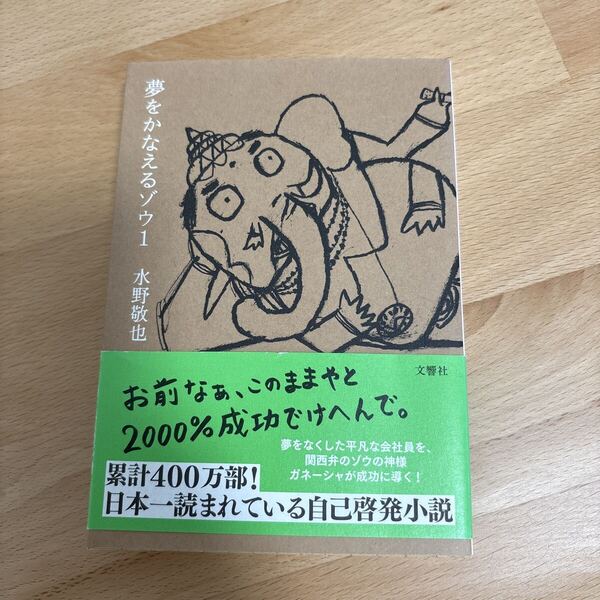 夢をかなえるゾウ1
水野敬也
文響社
お前なぁ、このままやと
2000%成功でけへんで。
夢をなくした平凡な会社員を、
関西弁のゾウの神様
ガネーシャが成功に導く！
累計400万部！
日本一読まれている自己啓発小説